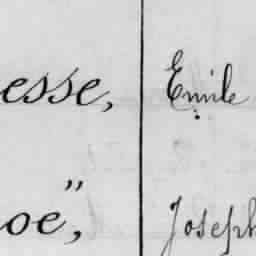 esse, Emile
oe", Joseph